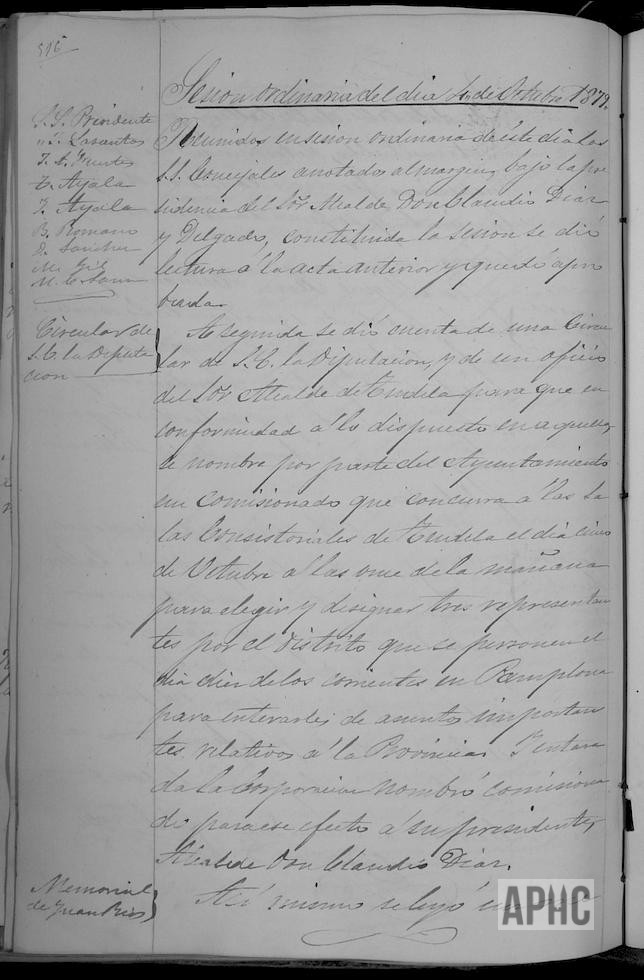 516
Sesion ordinaria del dia 4 de Octubre 1879.
S.S. Presidente
T. Lasantos
T. A. Fuertes
T. Ayala
T. Ayala
B. Romano
D. Sanchez
M. Gil
M.
Reunidos en sesion ordinaria de este dia los
S.S. Concejales anotados al margen, bajo la pre
sidencia del Sor. Alcalde Don Claudio Diaz
y Delgado, constituida la sesion se dió
lectura á la acta anterior y quedó apro
bada.
Circular de
S.E. la Diputa
cion
A seguida se dió cuenta de una Circu
lar de S.E. la Diputacion, y de un oficio
del Sor Alcalde de Tudela para que en
conformidad á lo dispuesto en aquella,
se nombre por parte del Ayuntamiento
un comisionado que concurra á las Sa
las Consistoriales de Tudela el dia cinco
de Octubre á las once de la mañana
para elegir y designar tres representan
tes por el distrito que se personen el
dia diez de los corrientes en Pamplona
para enterarles de asuntos importan
tes relativos á la Provincia. Y entera
da la Corporacion nombró comisiona
do para ese efecto á su presidente,
Alcalde Don Claudio Diaz.
Memorial
de Juan Rios
Asi mismo se leyó
APHC